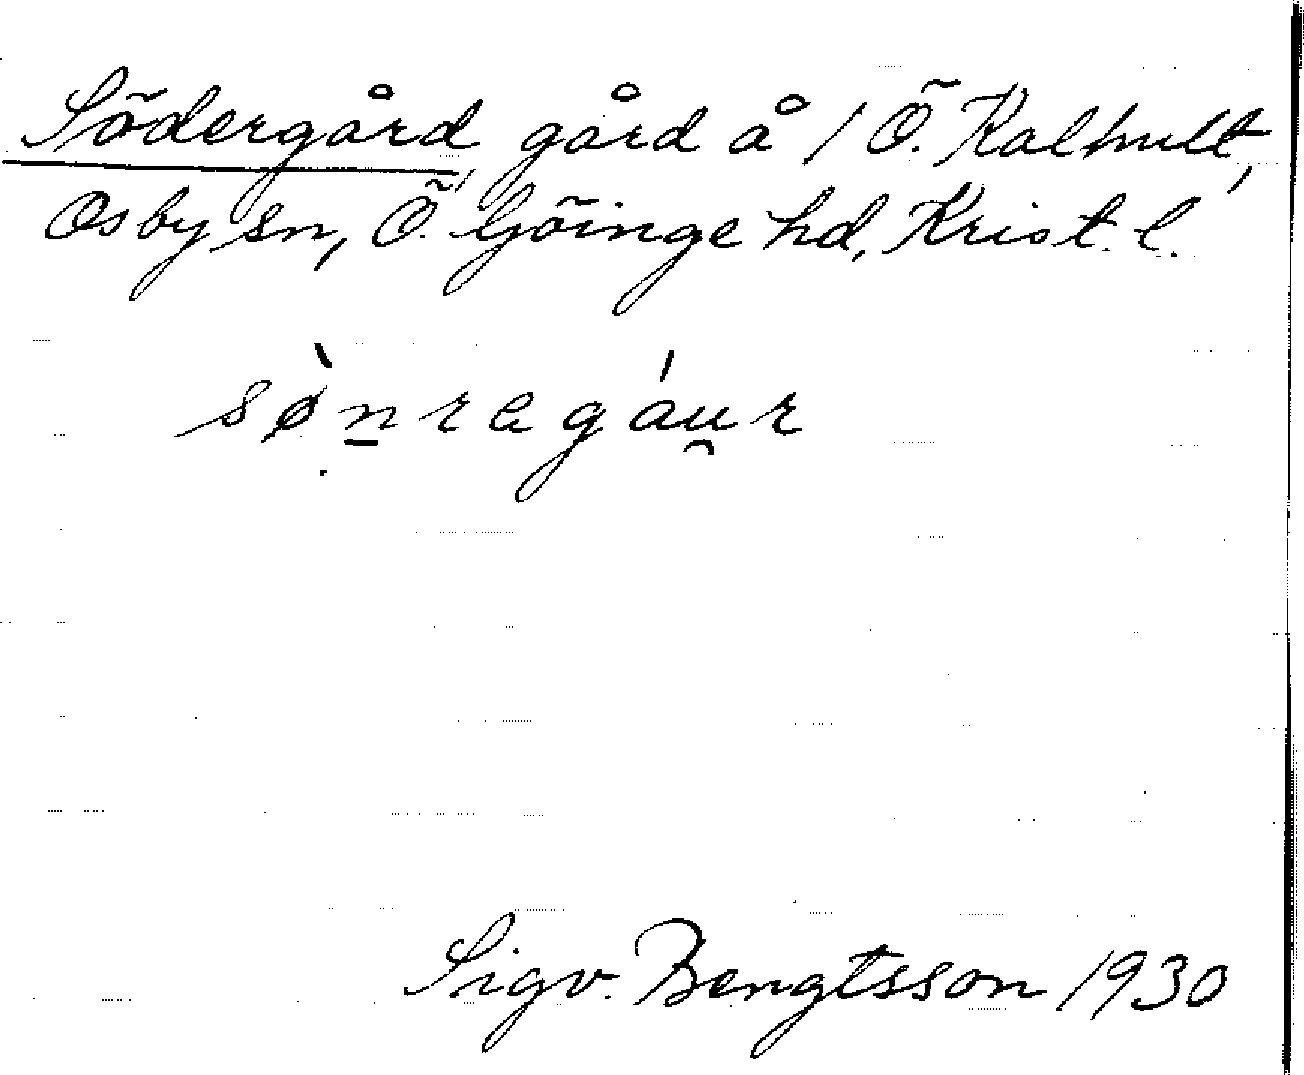 Södergård, gård å 1 Ö. Kalhult,
Osby sn, Ö. Göinge hd, Krist. l.
sø̀n̠regáu̯r
Sigv. Bengtsson 1930